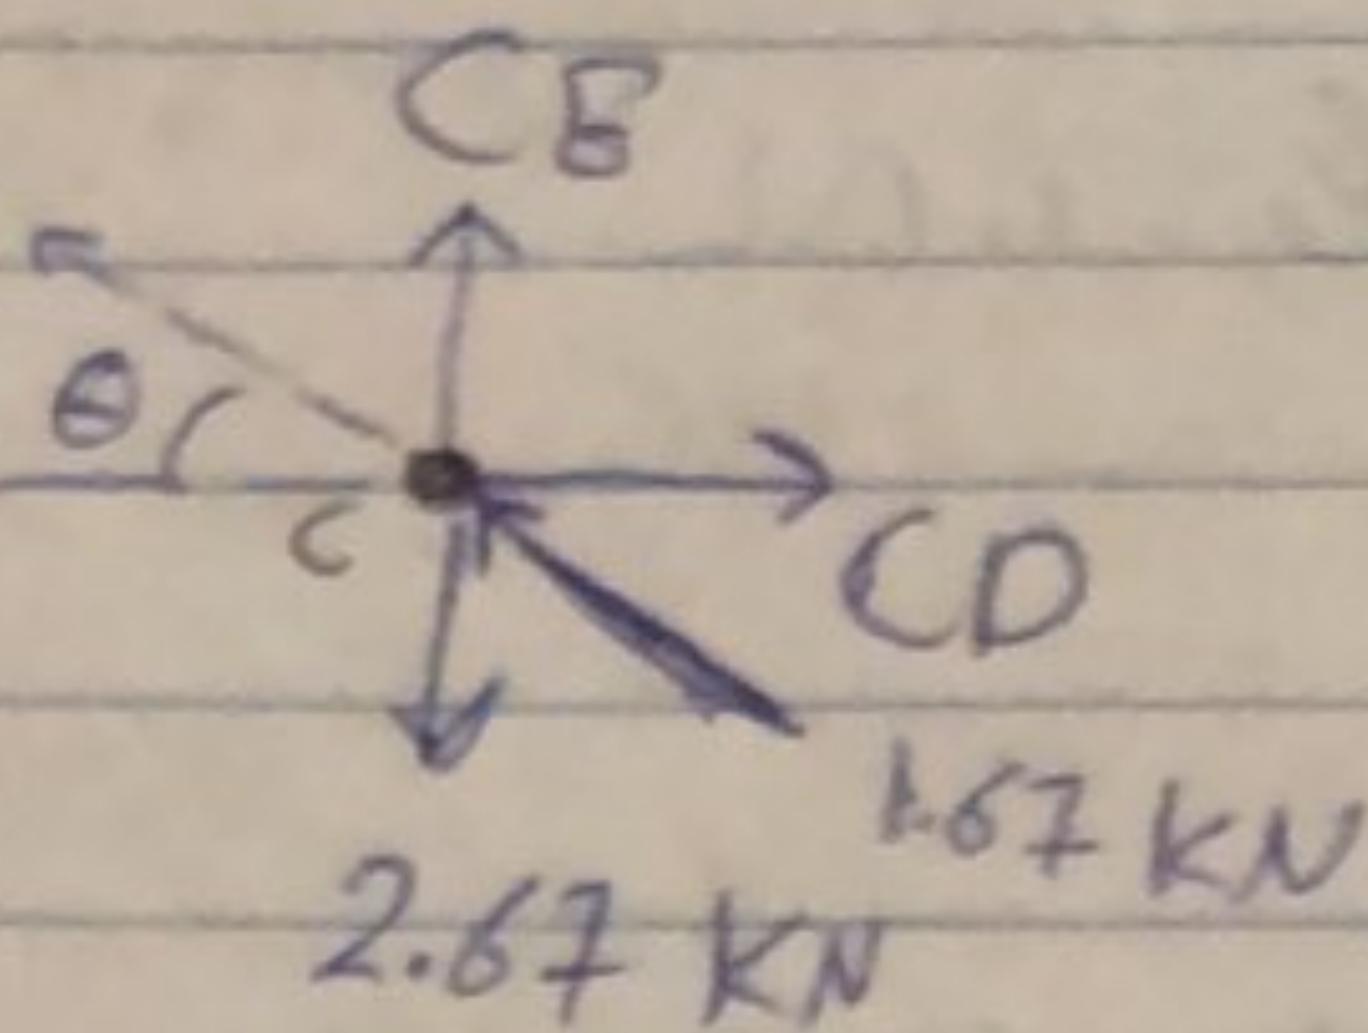 CE
θ
C
CD
1.67 KN
2.67 KN